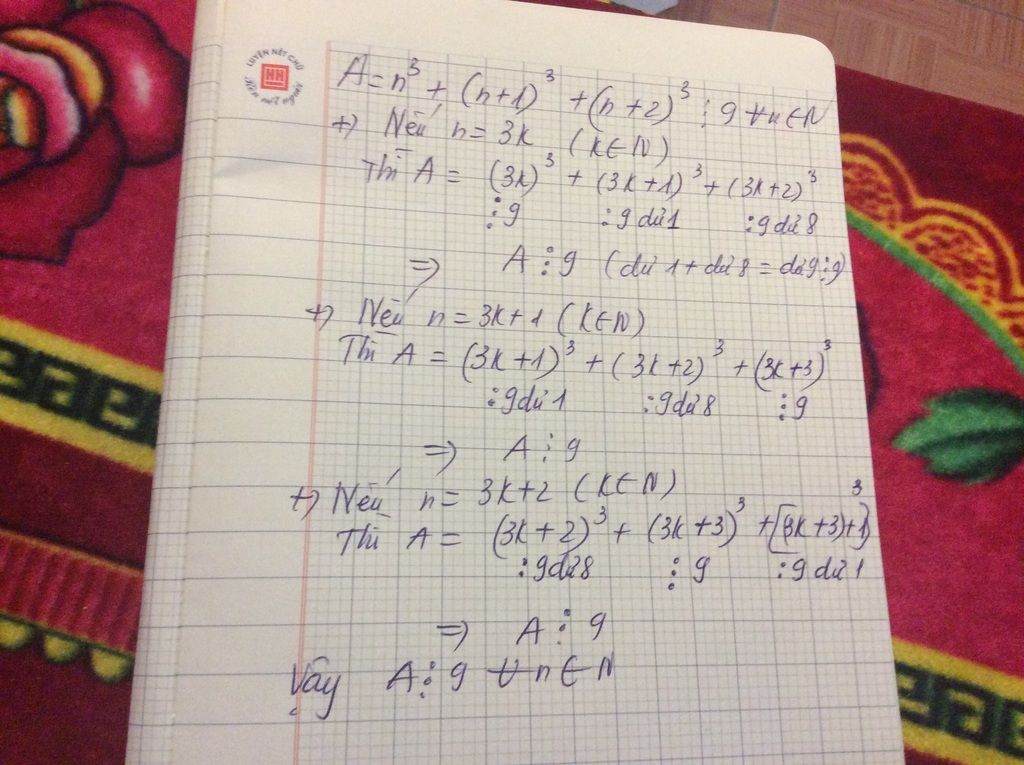 LUYỆN NÉT CHỮ
A = n³ + (n+1)³ + (n+2)³ ⋮ 9 ∀n∈N
+) Nếu n = 3k (k∈N)
Thì A = (3k)³ + (3k+1)³ + (3k+2)³
⋮9 :9 dư 1 :9 dư 8
=> A ⋮ 9 (dư 1 + dư 8 = dư 9 ⋮ 9)
+) Nếu n = 3k+1 (k∈N)
Thì A = (3k+1)³ + (3k+2)³ + (3k+3)³
:9 dư 1 :9 dư 8 ⋮9
=> A ⋮ 9
+) Nếu n = 3k+2 (k∈N)
Thì A = (3k+2)³ + (3k+3)³ + [(3k+3)+1]³
:9 dư 8 ⋮ 9 :9 dư 1
=> A ⋮ 9
Vậy A ⋮ 9 ∀n∈N